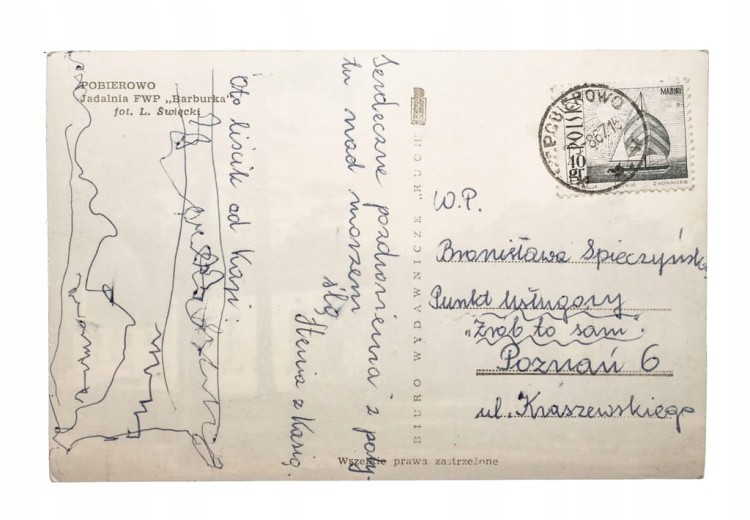 POBIEROWO
Jadalnia FWP „Barburka"
fot. L. Święcki
Oto liścik od Kasi:
Serdeczne pozdrowienia z poby-
tu nad morzem
ślą
Henia z Kasią.
BIURO WYDAWNICZE „RUCH"
POBIEROWO
POLSKA
40
GR
MAZURY
W.P.
Bronisława Spieczyńska
Punkt usługowy
„Zrób to sam".
Poznań 6
ul. Kraszewskiego
Wszelkie prawa zastrzeżone